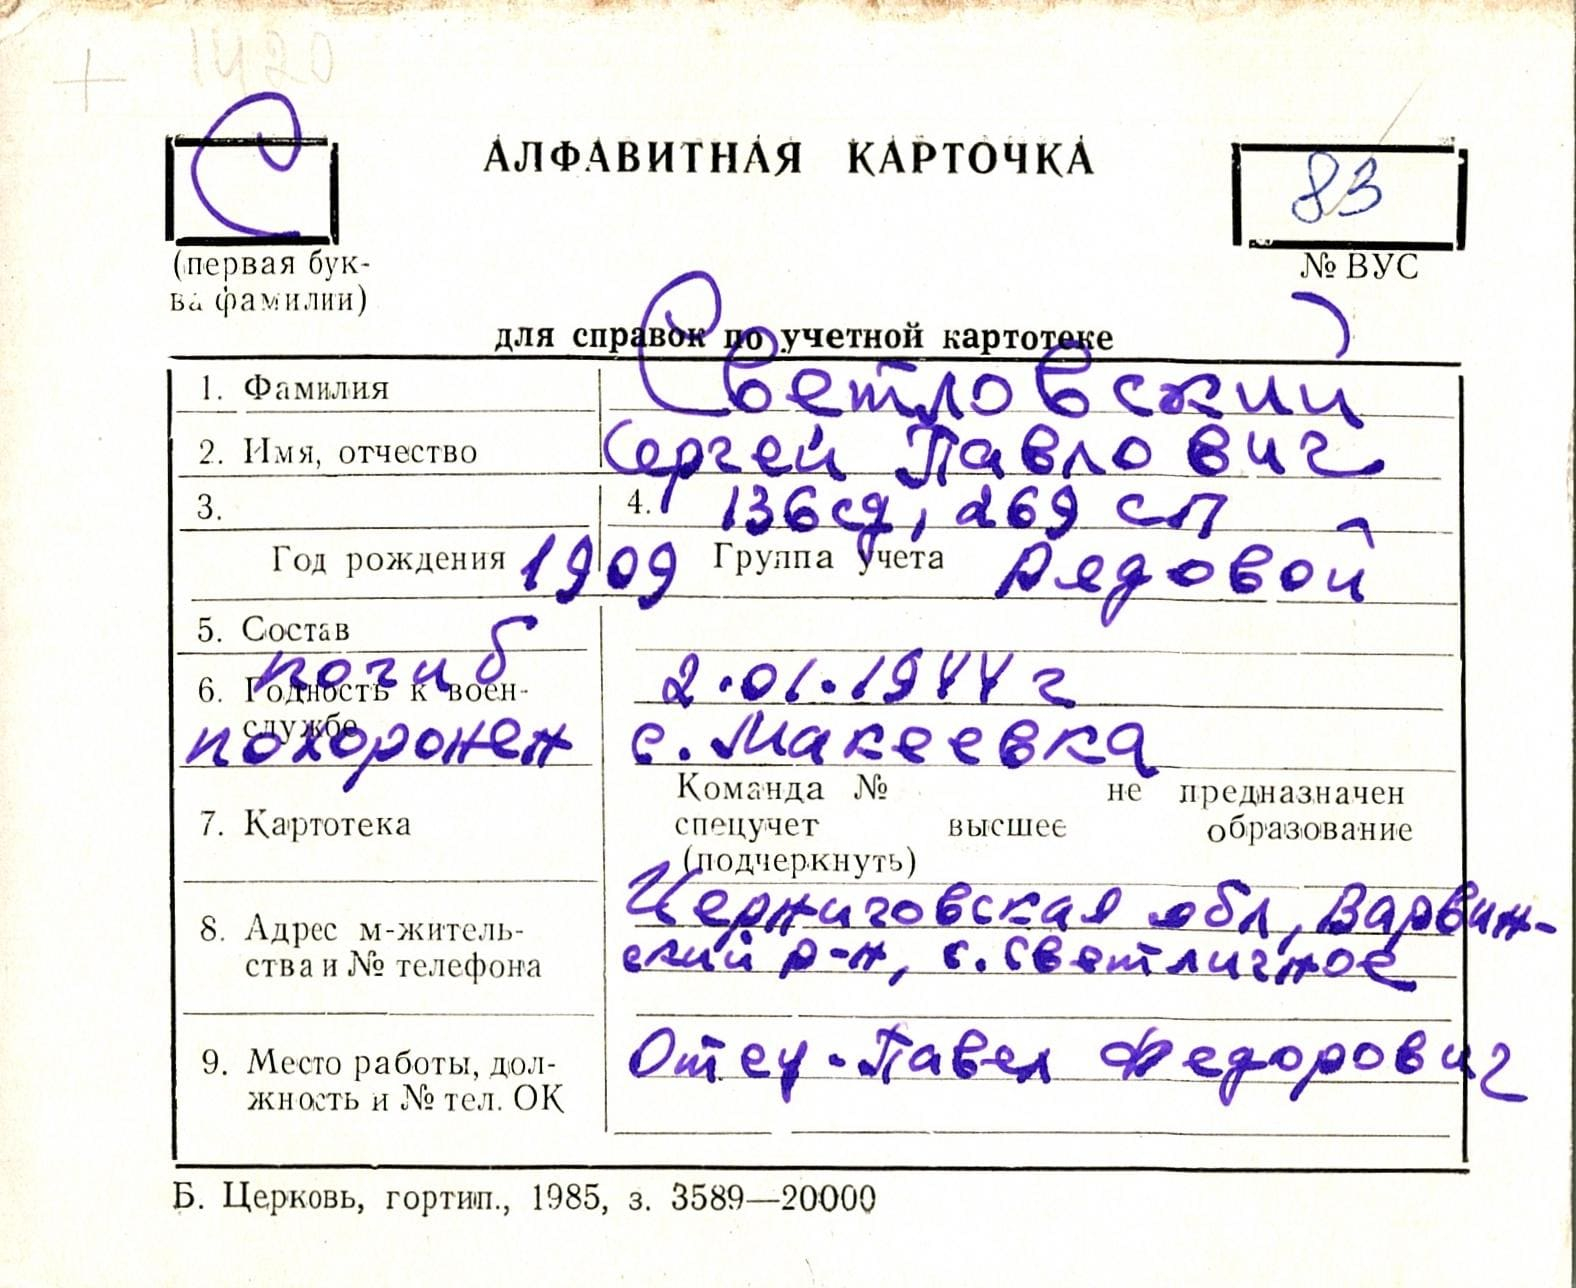 1420
С
АЛФАВИТНАЯ КАРТОЧКА
83
(первая бук-
ва фамилии)
№ ВУС
для справок по учетной картотеке
1. Фамилия Светловский
2. Имя, отчество Сергей Павлович
3. 4. 136 сд, 269 сп
Год рождения 1909 Группа учета рядовой
5. Состав
погиб 2.01.1944 г
6. Годность к воен-
службе
похоронен с. Макеевка
Команда № не предназначен
7. Картотека спецучет высшее образование
(подчеркнуть)
Черниговская обл, Варвин-
8. Адрес м-житель-
ства и № телефона ский р-н, с. Светличное
9. Место работы, дол- Отец - Павел Федорович
жность и № тел. ОК
Б. Церковь, гортип., 1985, з. 3589—20000